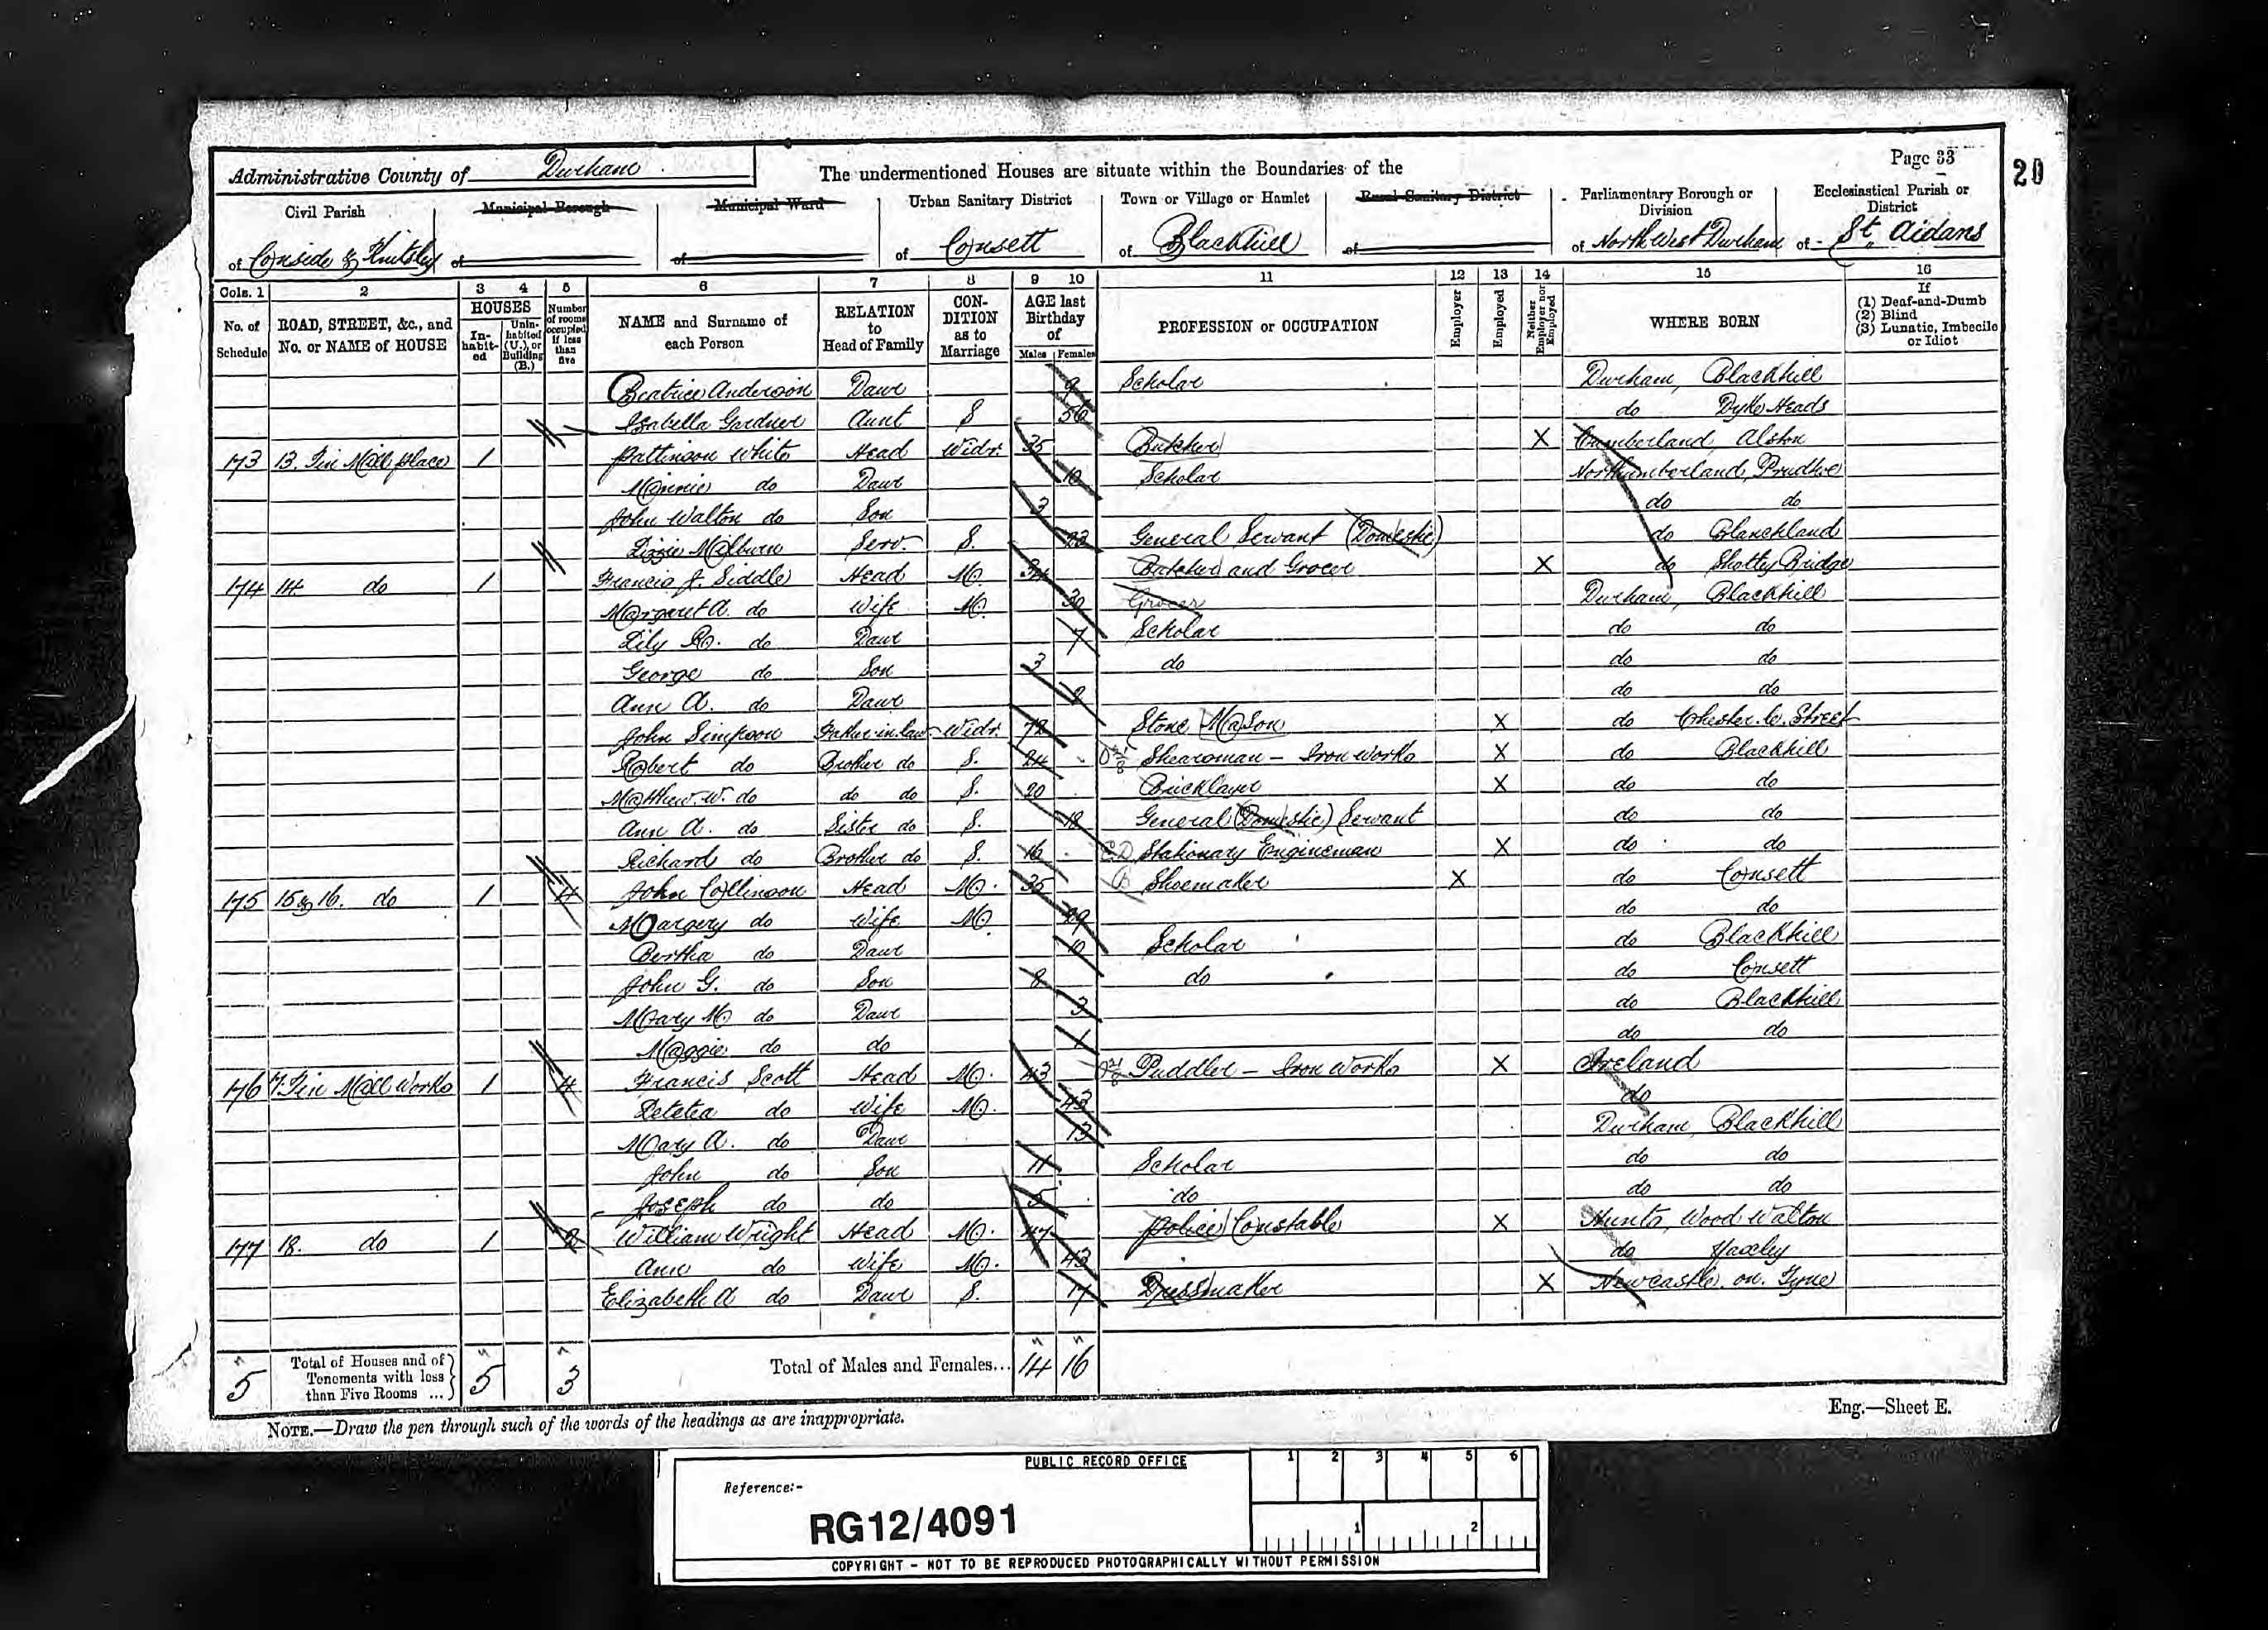 Page 33
20
Administrative County of Durham
The undermentioned Houses are situate within the Boundaries of the
Civil Parish of Conside & Knitsley
Municipal Borough of
Municipal Ward of
Urban Sanitary District of Consett
Town or Village or Hamlet of Blackhill
Rural Sanitary District of
Parliamentary Borough or Division of North West Durham
Ecclesiastical Parish or District of St. Aidans
Cols. 1 2 3 4 5 6 7 8 9 10 11 12 13 14 15 16
No. of Schedule
ROAD, STREET, &c., and No. or NAME of HOUSE
HOUSES
In-habit-ed
Unin-habited (U.), or Building (B.)
Number of rooms occupied if less than five
NAME and Surname of each Person
RELATION to Head of Family
CON-DITION as to Marriage
AGE last Birthday of
Males Females
PROFESSION or OCCUPATION
Employer
Employed
Neither Employer nor Employed
WHERE BORN
If
(1) Deaf-and-Dumb
(2) Blind
(3) Lunatic, Imbecile or Idiot
Beatrice Anderson Daur 9 Scholar Durham, Blackhill
Isabella Gardner Aunt S 56 do Dyke Heads
173 13. Tin Mill place 1 Pattinson White Head Widr. 35 Butcher X Cumberland, Alston
Minnie do Daur 10 Scholar Northumberland, Prudhoe
John Walton do Son 3 do do
Lizzie Milburn Serv. S. 23 General Servant (Domestic) do Blanchland
174 14 do 1 Francis J. Siddle Head M. 34 Butcher and Grocer X do Shotley Bridge
Margaret A. do Wife M. 30 Grocer Durham, Blackhill
Lily do Daur 7 Scholar do do
George do Son 3 do do do
Ann A. do Daur 2 do do
John Simpson Father-in-law Widr. 72 Stone Mason X do Chester-le-Street
Robert do Brother do S. 24 Shearsman - Iron Works X do Blackhill
Matthew. W. do do do S. 20 Bricklayer X do do
Ann A. do Sister do S. 18 General (Domestic) Servant do do
Richard do Brother do S. 16 Stationary Engineman X do do
175 15 & 16. do 1 4 John Collinson Head M. 35 Shoemaker X do Consett
Margery do Wife M. 29 do do
Bertha do Daur 10 Scholar do Blackhill
John G. do Son 8 do do Consett
Mary M do Daur 3 do Blackhill
Maggie do do 1 do do
176 17. Tin Mill Works 1 4 Francis Scott Head M. 43 Puddler - Iron Works X Ireland
Letetea do Wife M. 43 do
Mary A. do Daur 13 Durham, Blackhill
John do Son 11 Scholar do do
Joseph do do 5 do do do
177 18. do 1 2 William Wright Head M. 47 Police Constable X Hunts, Wood Walton
Ann do Wife M. 43 do Yaxley
Elizabeth A do Daur S. 17 Dressmaker X Newcastle. on. Tyne
5 Total of Houses and of Tenements with less than Five Rooms ... 5 3 Total of Males and Females... 14 16
NOTE.—Draw the pen through such of the words of the headings as are inappropriate.
Eng.—Sheet E.
PUBLIC RECORD OFFICE
1 2 3 4 5 6
Reference:-
RG12/4091
1 2
COPYRIGHT - NOT TO BE REPRODUCED PHOTOGRAPHICALLY WITHOUT PERMISSION